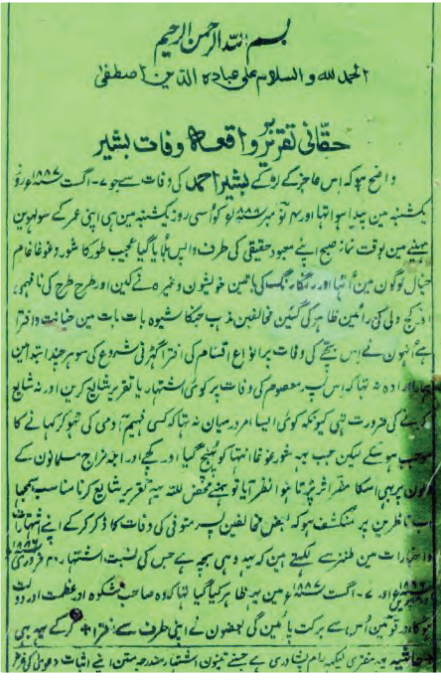 بسم اللہ الرحمن الرحیم
الحمد للہ والسلام علی عبادہ الذین اصطفی
حقانی تقریر بر واقعہ وفات بشیر
واضح ہو کہ اس عاجز کے لڑکے بشیر احمد کی وفات سے جو ۷۔ اگست ۱۸۸۷ء روز
یکشنبہ مین پیدا ہوا تہا اور ۴ نومبر ۱۸۸۸ء کو اُسی روز یکشنبہ مین ہی اپنی عمر کے سولہوین
مہینے مین بوقت نماز صبح اپنے معبود حقیقی کی طرف واپس بلایا گیا عجیب طور کا شور و غوغا خام
خیال لوگون مین اُٹہا اور رنگارنگ کی باتین خویشون وغیرہ نے کین اور طرح طرح کی نافہمی
اور کج دلی کی رائین ظاہر کی گئین مخالفین مذہب جنکا شیوہ بات بات مین خیانت و افترا
ہے اُنہون نے اس بچے کی وفات پر انواع اقسام کی افترا گہڑنی شروع کی سو ہر چند ابتدا مین
ہمارا ارادہ نہ تہا کہ اس پسر معصوم کی وفات پر کوئی اشتہار یا تقریر شایع کرین اور نہ شایع
کرنے کی ضرورت تہی کیونکہ کوئی ایسا امر درمیان نہ تہا کہ کسی فہیم آدمی کی ٹہوکر کہانے کا
موجب ہو سکے لیکن جب یہ شور و غوغا انتہا کو پہنچ گیا اور کچے اور ابلہ مزاج مسلمانون کے
دلون پر بہی اسکا مضر اثر پڑتا ہوا نظر آیا تو ہمنے محض للہ یہ تقریر شایع کرنا مناسب سمجہا
اب ناظرین پر منکشف ہو کہ بعض مخالفین پسر متوفی کی وفات کا ذکر کر کے اپنے اشتہارات
و اخبارات مین طنز سے لکہتے ہین کہ یہ وہی بچہ ہے جس کی نسبت اشتہار ۲۰ فروری ۱۸۸۶ء
اور ۷۔ اگست ۱۸۸۷ء مین یہ ظاہر کیا گیا تہا کہ وہ صاحب شکوہ اور عظمت اور دولت
ہوگا اور قومین اُس سے برکت پائین گی بعضون نے اپنی طرف سے افترا کر کے یہ بہی
حاشیہ یہ مفتری لیکہرام پشاوری ہے جسنے تینون اشتہار مندرجہ متن اپنے اثبات دعویٰ کی غرض